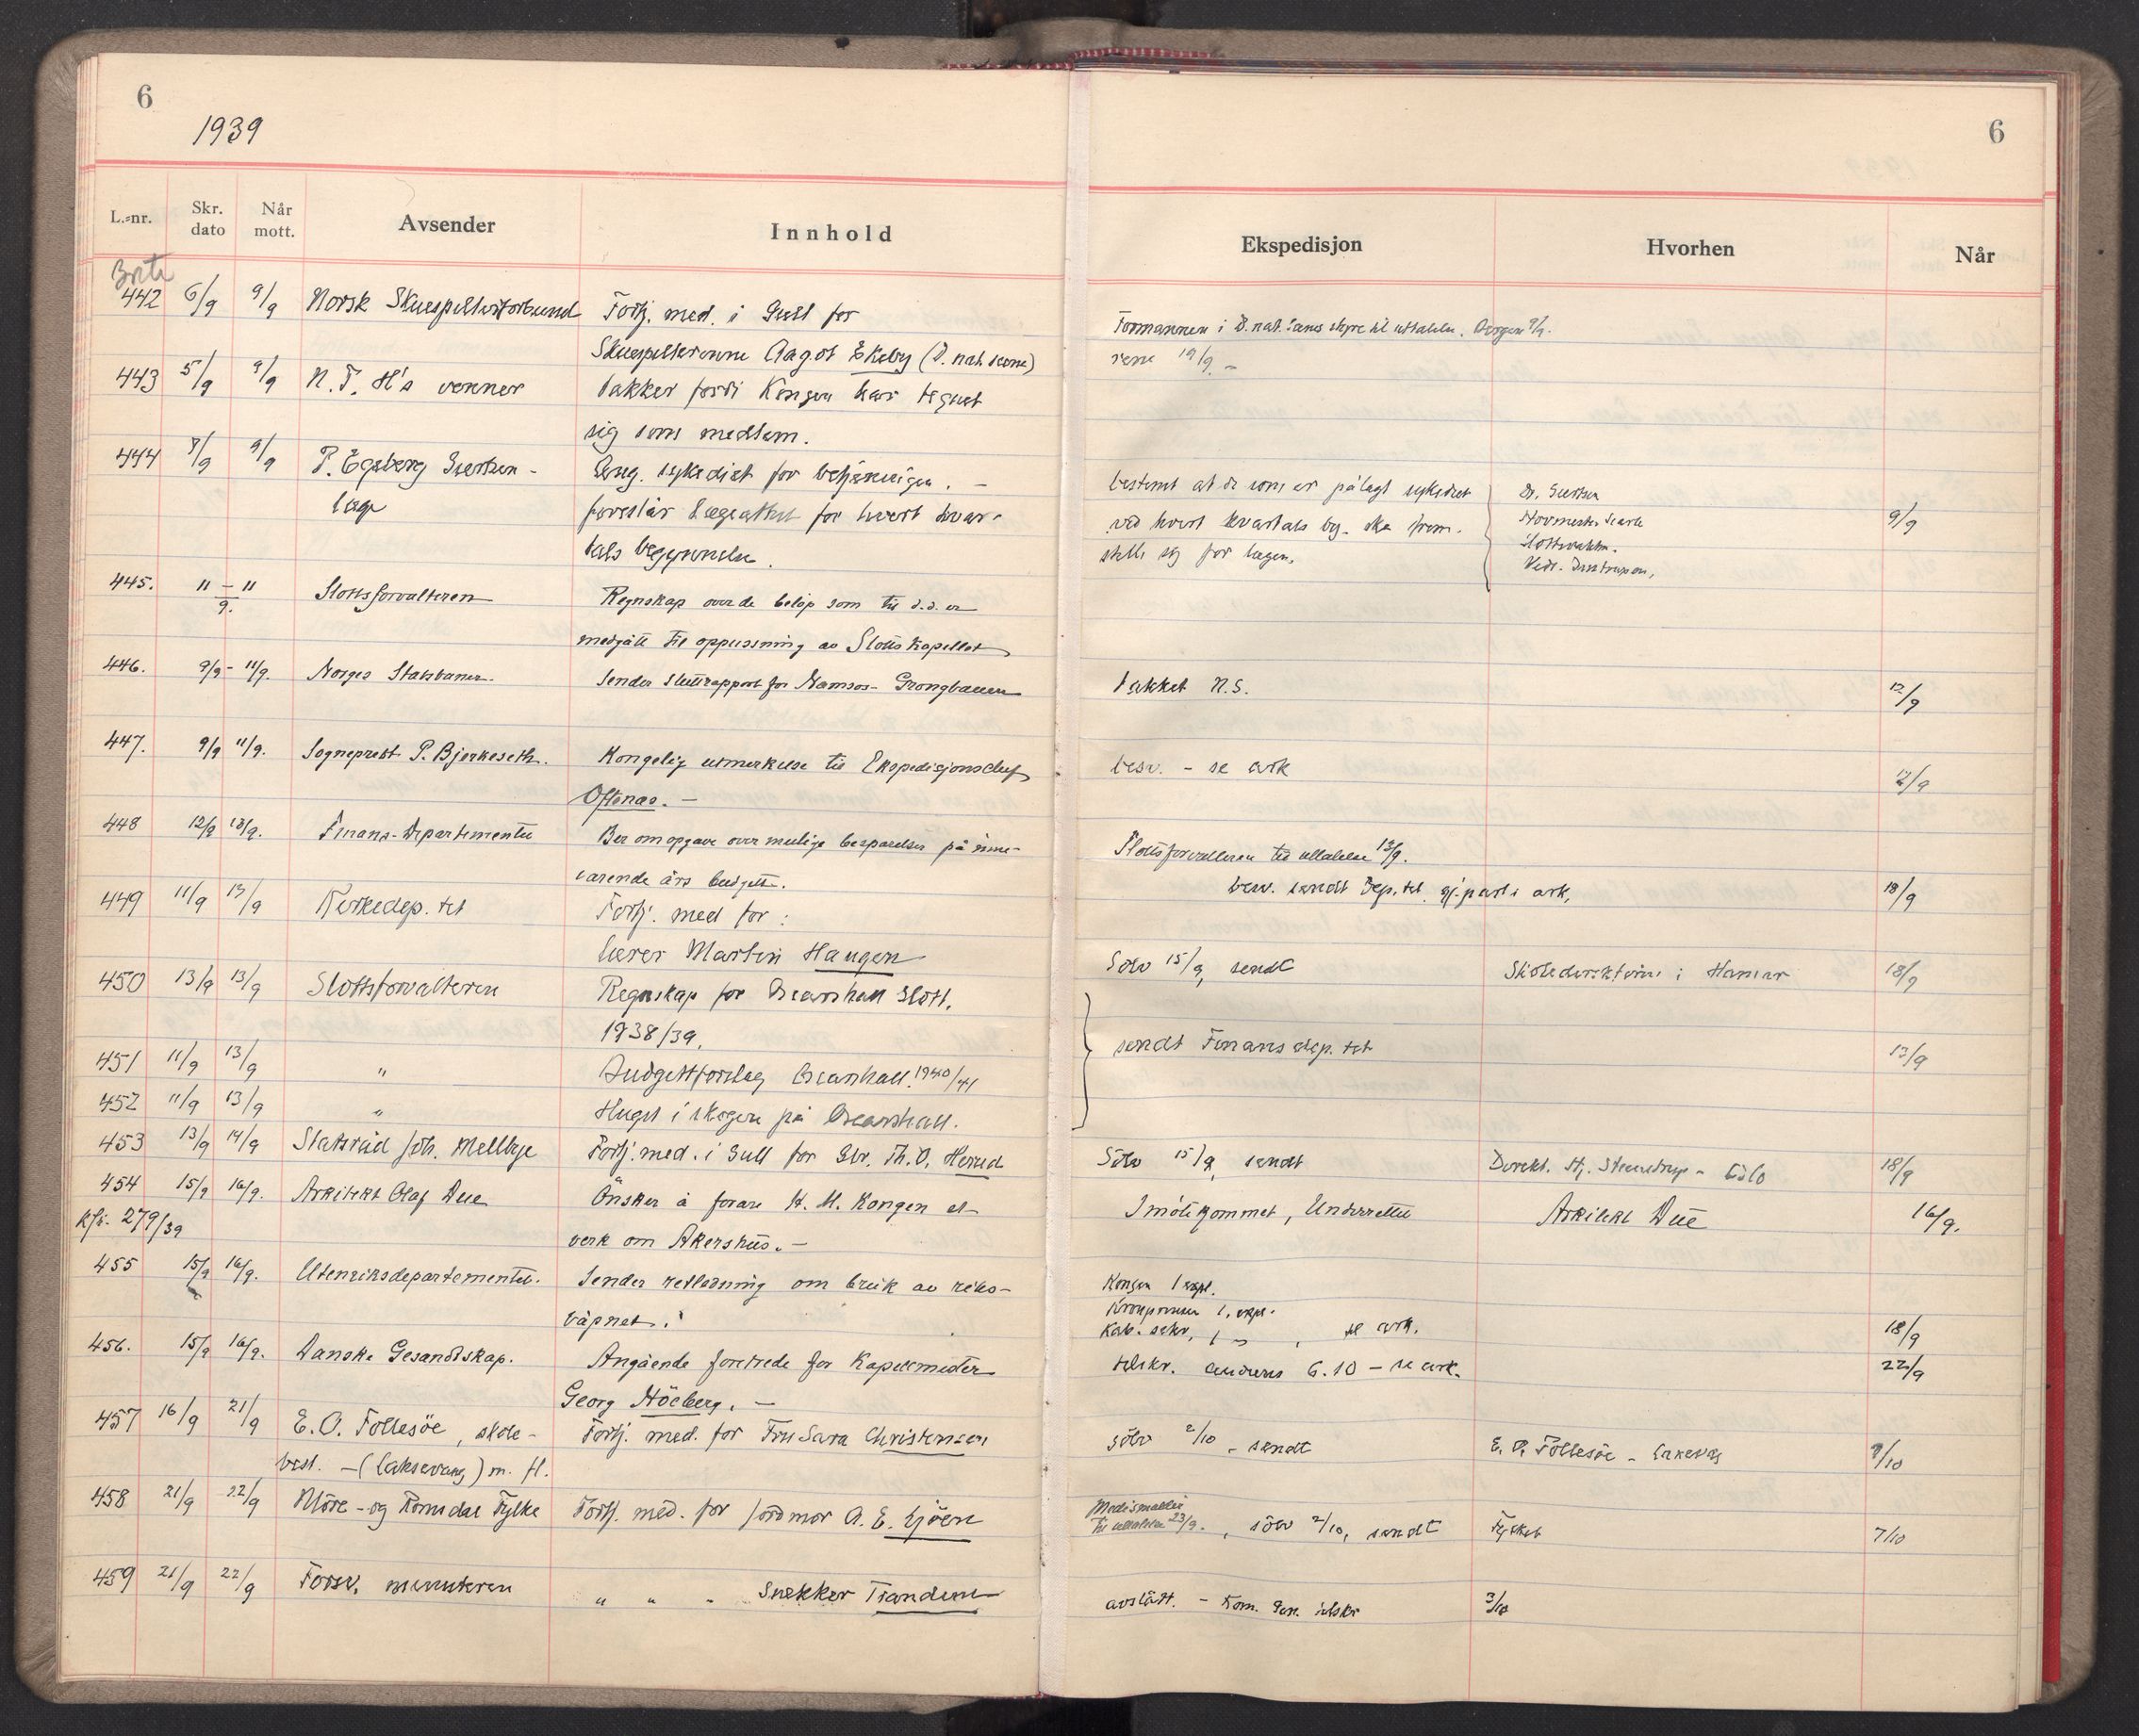 6
1939
L.-nr.
Skr. dato
Når mott.
Avsender
Innhold
442 6/9 9/9 Norsk Skuespillerforbund Fortj. med. i Gull for
Skuespillerinne Aagot Ekeby (D. nat. scene)
443 5/9 9/9 N. T. H's venner takker fordi Kongen har tegnet
sig som medlem.
444 7/9 9/9 P. Egeberg Sivertsen - Ang. sykediet for betjeningen. -
læge foreslår Lægeattest for hvert kvar-
tals begynnelse.
445. 11 - 11/9. Slottsforvalteren Regnskap over de beløp som til d.d. er
medgått til oppussning av Slottskapellet
446. 9/9 - 11/9. Norges Statsbaner. Sender sluttrapport for Namsos-Grongbanen
447. 9/9 11/9. Sogneprest P. Bjerkeseth. Kongelig utmerkelse til Ekspedisjonschef
Oftenæs. -
448 12/9 13/9. Finans-Departementet Ber om opgave over mulige besparelser på inne-
værende års budgett.
449 11/9 13/9 Kirkedep.tet Fortj. med for:
lærer Martin Haugen
450 13/9 13/9 Slottsforvalteren Regnskap for Oscarshall Slott,
1938/39.
451 11/9 13/9 " Budgettforslag Oscarshall. 1940/41
452 11/9 13/9 " Hugst i skogen på Oscarshall.
453 13/9 14/9 Statsråd Joh. Mellbye Fortj. med. i Gull for Gbr. Th. O. Herud
454 15/9 16/9. Arkitekt Olaf Due Ønsker å forære H. M. Kongen et
kfr. 279/39 verk om Akershus. -
455 15/9 16/9. Utenriksdepartementet. Sender retledning om bruk av riks-
våpnet.
456. 15/9 16/9. Danske Gesandtskap. Angående foretrede for Kapelmester
Georg Höeberg. -
457 16/9 21/9 E. O. Follesöe, skole- Fortj. med. for Fru Sara Christensen
best. - (Laksevaag) m. fl.
458 21/9 22/9 Möre- og Romsdal Fylke Fortj. med. for jordmor A. E. Kjöen
459 21/9 22/9 Forsv. ministeren " " " Snekker Trandem
6
Ekspedisjon
Hvorhen
Når
Formannen i D. nat. Scenes styre til uttalelse. Bergen 9/9.
19/9. -
bestemt at de som er pålagt sykediet
ved hvert kvartals beg. ska frem-
stille sig for lægen.
Dr. Sivertsen
Hovmester
Slottsvaktm.
9/9
takket N.S. 12/9
besv. - se ark 12/9
Slottsforvalteren til uttalelse 13/9.
besv. sendt Dep.tet gj.part i ark. 18/9
Sölv 15/9, sendt Skoledirektören i Hamar 18/9
sendt Finansdep.tet 13/9
Sölv 15/9, sendt Direkt. Hj. Steenstrup - Oslo 18/9
Imötekommet, Underrettet Arkitekt Due 16/9.
Kongen 1 expl.
Kronprinsen 1. expl.
Kab. sekr. 1 " , se ark. 18/9
tilskr. audiens 6.10 - se ark. 22/9
sölv 2/10 - sendt E. O. Follesöe - Laksevåg 7/10
Medismaller
til uttalelse 23/9. , sölv 2/10, sendt Fylket 7/10
avslått. - Kom. Gen. tilskr 3/10